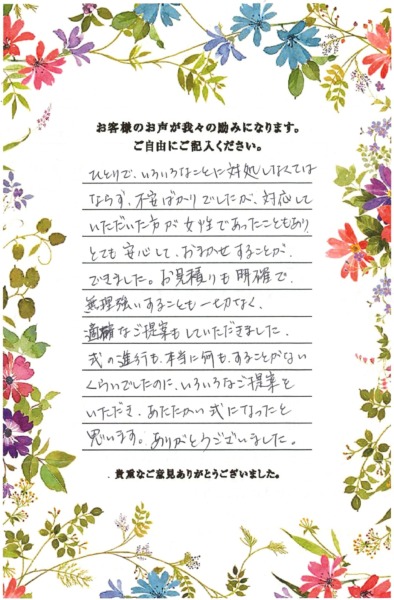 お客様のお声が我々の励みになります。
ご自由にご記入ください。
ひとりで、いろいろなことに対処しなくては
ならず、不安ばかりでしたが、対応して
いただいた方が女性であったこともあり
とても安心して、おまかせすることが、
できました。お見積りも明確で、
無理強いすることも一切なく、
適確なご提案もしていただきました。
式の進行も、本当に何も、することがない
くらいでしたのに、いろいろなご提案を
いただき、あたたかい式になったと
思います。ありがとうございました。
貴重なご意見ありがとうございました。